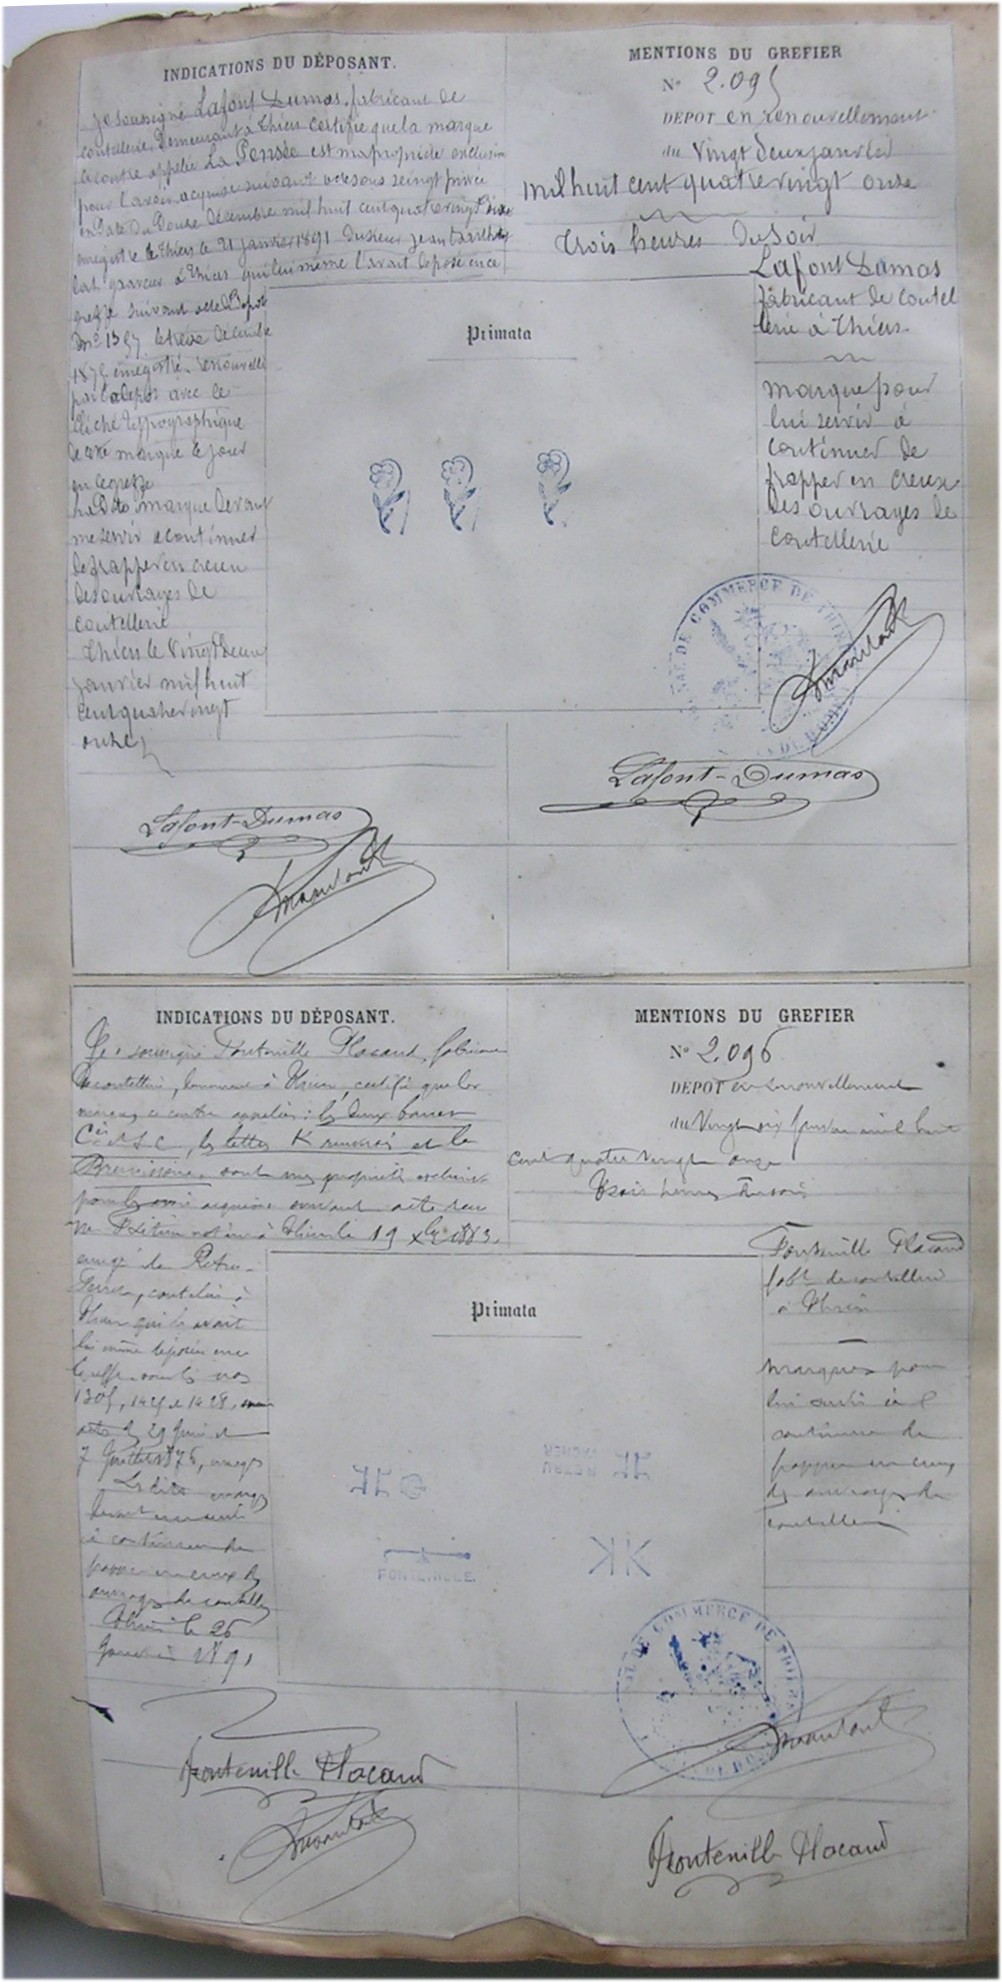 INDICATIONS DU DÉPOSANT.
Je soussigné Lafont Dumas, fabricant de
coutellerie, Demeurant à Thiers certifie que la marque
ci contre appelée La Pensée est ma propriété exclusive
pour l'avoir acquise suivant acte sous seingt privée
en Date du Douze Décembre mil huit cent quatre vingt dix
enregistré à Thiers le 21 janvier 1891 Du sieur Jean Barthélémy
graveur à Thiers qui lui même l'avait déposé en ce
greffe suivant acte de Dépot
le treize
enregistré, renouvellé
avec le
cliché typographique
de cette marque ce jour
en ce greffe
La dite marque devant
me servir a continuer
de frapper en creux
des ouvrages de
coutellerie
Thiers le Vingt Deux
janvier mil huit
cent quatre vingt
onze
Lafont-Dumas
MENTIONS DU GREFIER
N° 2.095
DÉPOT en renouvellement
du Vingt deux janvier
mil huit cent quatre vingt onze
Trois heures du soir
Lafont Dumas
fabricant de coutel
lerie à Thiers
Primata
marque pour
lui servir à
continuer de
frapper en creux
des ouvrages de
coutellerie
DE COMMERCE DE THIERS
Lafont-Dumas
INDICATIONS DU DÉPOSANT.
Je soussigné Fontenille Placaud, fabricant
de coutellerie, demeurant à Thiers, certifie que les
marques ci contre appelées : les deux barres
les lettres K renversé et la
sont ma propriété exclusive
pour les avoir acquises suivant acte reçu
notaire à Thiers le 19
coutelier à
Thiers qui les avait
lui même déposées en ce
greffe sous les nos
1305, 1425 et 1428, suivant
actes des 29 Juin et
7 Juillet 1876,
Les dites marques
devant me servir
à continuer de
frapper en creux des
ouvrages de coutellerie
Thiers le 26
Janvier 1891
Fontenille Placaud
MENTIONS DU GREFIER
N° 2.096
DÉPOT en renouvellement
du Vingt six janvier mil huit
cent quatre vingt onze
Trois heures du soir
Fontenille Placaud
fabt de coutellerie
à Thiers
Primata
FONTENILLE.
marques pour
lui servir à
continuer de
frapper en creux
des ouvrages de
coutellerie
DE COMMERCE DE THIERS
Fontenille Placaud